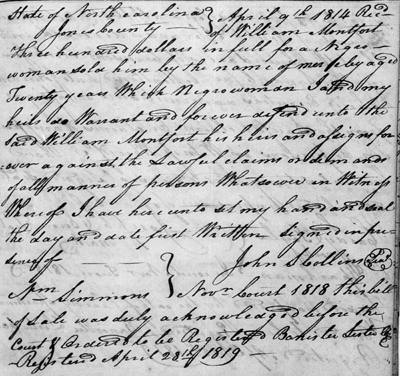 State of North carolina } April 9th 1814 Recd
Jones county } of William Montfort
Three hundred dollars in full for a Negro
woman sold him by the name of by aged
Twenty years Which Negro woman I and my
heirs do Warrant and forever defend unto the
Said William Montfort his heirs and asigns for
ever against the Lawful claims or demands
of all manner of persons Whatsoever in Witness
Whereof I have here unto set my hand and seal
the day and date first Written Signed in pre
sence of } John S Collins Seal
Wm Simmons } Novr Court 1818 this bill
of Sale was duly acknowledged before the
Court & Ordered to be Registerd Banister Lester
Registerd April 28th 1819